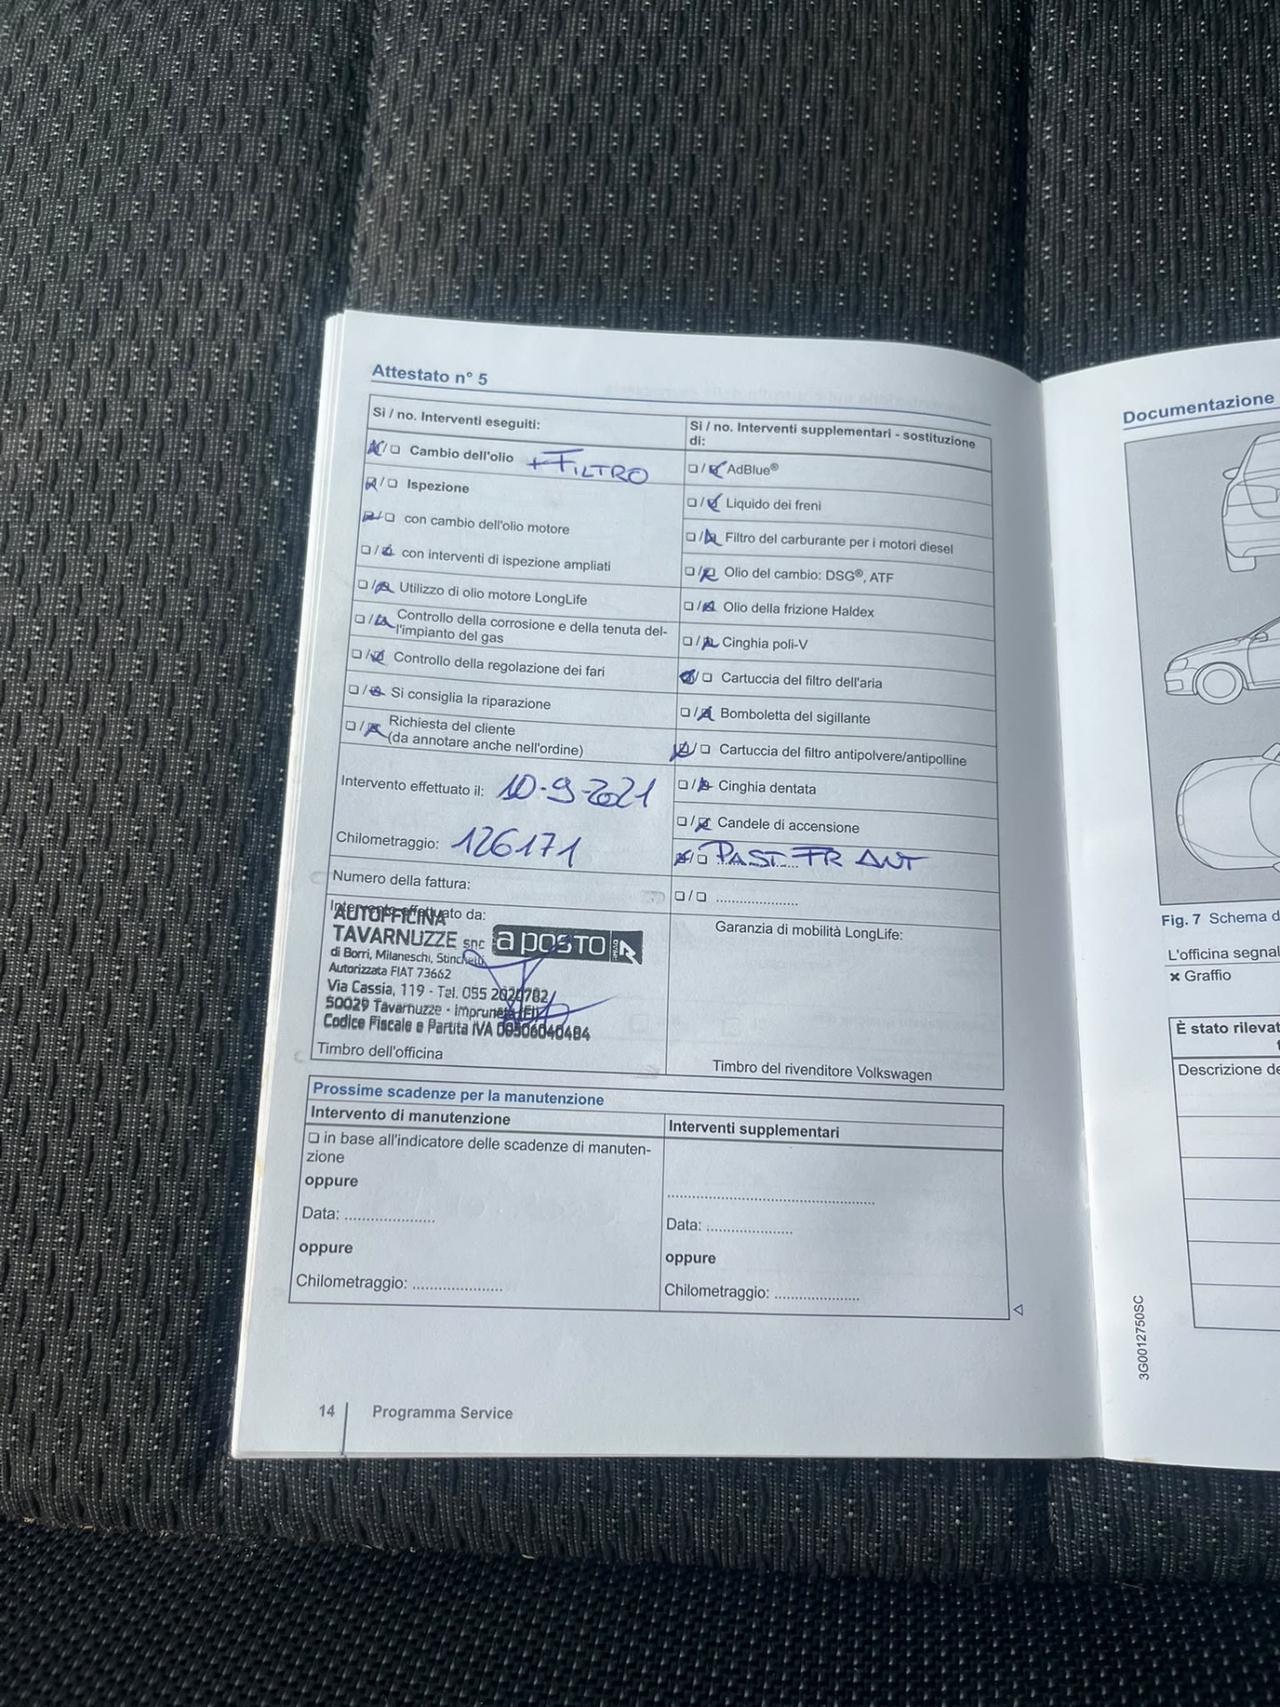 Attestato n° 5
Sì / no. Interventi eseguiti:
☒/☐ Cambio dell'olio + FILTRO
☒/☐ Ispezione
☒/☐ con cambio dell'olio motore
☐/☒ con interventi di ispezione ampliati
☐/☒ Utilizzo di olio motore LongLife
☐/☒ Controllo della corrosione e della tenuta del-
l'impianto del gas
☐/☒ Controllo della regolazione dei fari
☐/☒ Si consiglia la riparazione
☐/☒ Richiesta del cliente
(da annotare anche nell'ordine)
Intervento effettuato il: 10-9-2021
Chilometraggio: 126171
Numero della fattura:
Intervento effettuato da:
AUTOFFICINA
TAVARNUZZE snc a posto
di Borri, Milaneschi, Stinchetti
Autorizzata FIAT 73662
Via Cassia, 119 - Tel. 055 2020782
50029 Tavarnuzze - Impruneta (FI)
Codice Fiscale e Partita IVA
Timbro dell'officina
Sì / no. Interventi supplementari - sostituzione
di:
☐/☒ AdBlue®
☐/☒ Liquido dei freni
☐/☒ Filtro del carburante per i motori diesel
☐/☒ Olio del cambio: DSG®, ATF
☐/☒ Olio della frizione Haldex
☐/☒ Cinghia poli-V
☒/☐ Cartuccia del filtro dell'aria
☐/☒ Bomboletta del sigillante
☒/☐ Cartuccia del filtro antipolvere/antipolline
☐/☒ Cinghia dentata
☐/☒ Candele di accensione
☒/☐ PAST. FR ANT
☐/☐ ......................
Garanzia di mobilità LongLife:
Timbro del rivenditore Volkswagen
Prossime scadenze per la manutenzione
Intervento di manutenzione
☐ in base all'indicatore delle scadenze di manuten-
zione
oppure
Data: ......................
oppure
Chilometraggio: ......................
Interventi supplementari
......................................................
Data: ......................
oppure
Chilometraggio: ......................
14 Programma Service
Documentazione
Fig. 7 Schema d
L'officina segnal
× Graffio
È stato rilevat
Descrizione de
3G0012750SC